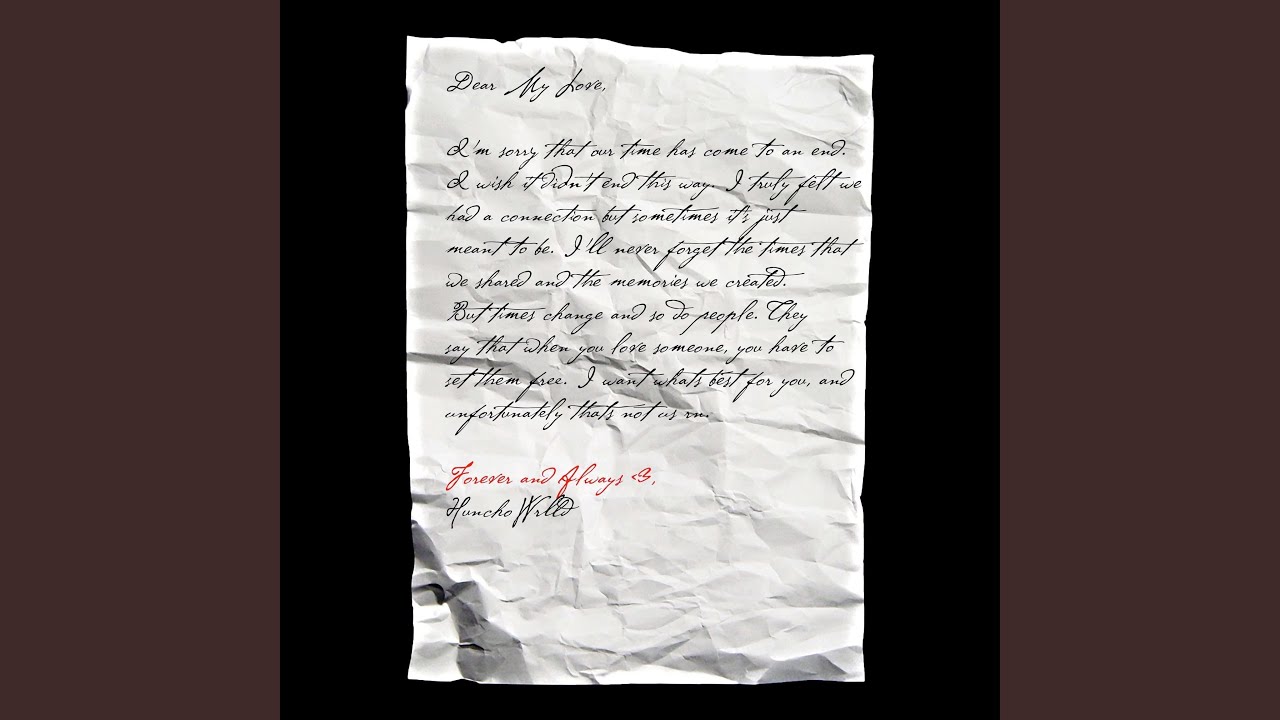 Dear My Love,
I'm sorry that our time has come to an end.
I wish it didn't end this way. I truly felt we
had a connection but sometimes it's just
meant to be. I'll never forget the times that
we shared and the memories we created.
But times change and so do people. They
say that when you love someone, you have to
set them free. I want whats best for you, and
unfortunately thats not us rn.
Forever and Always <3,
Huncho Wrlld